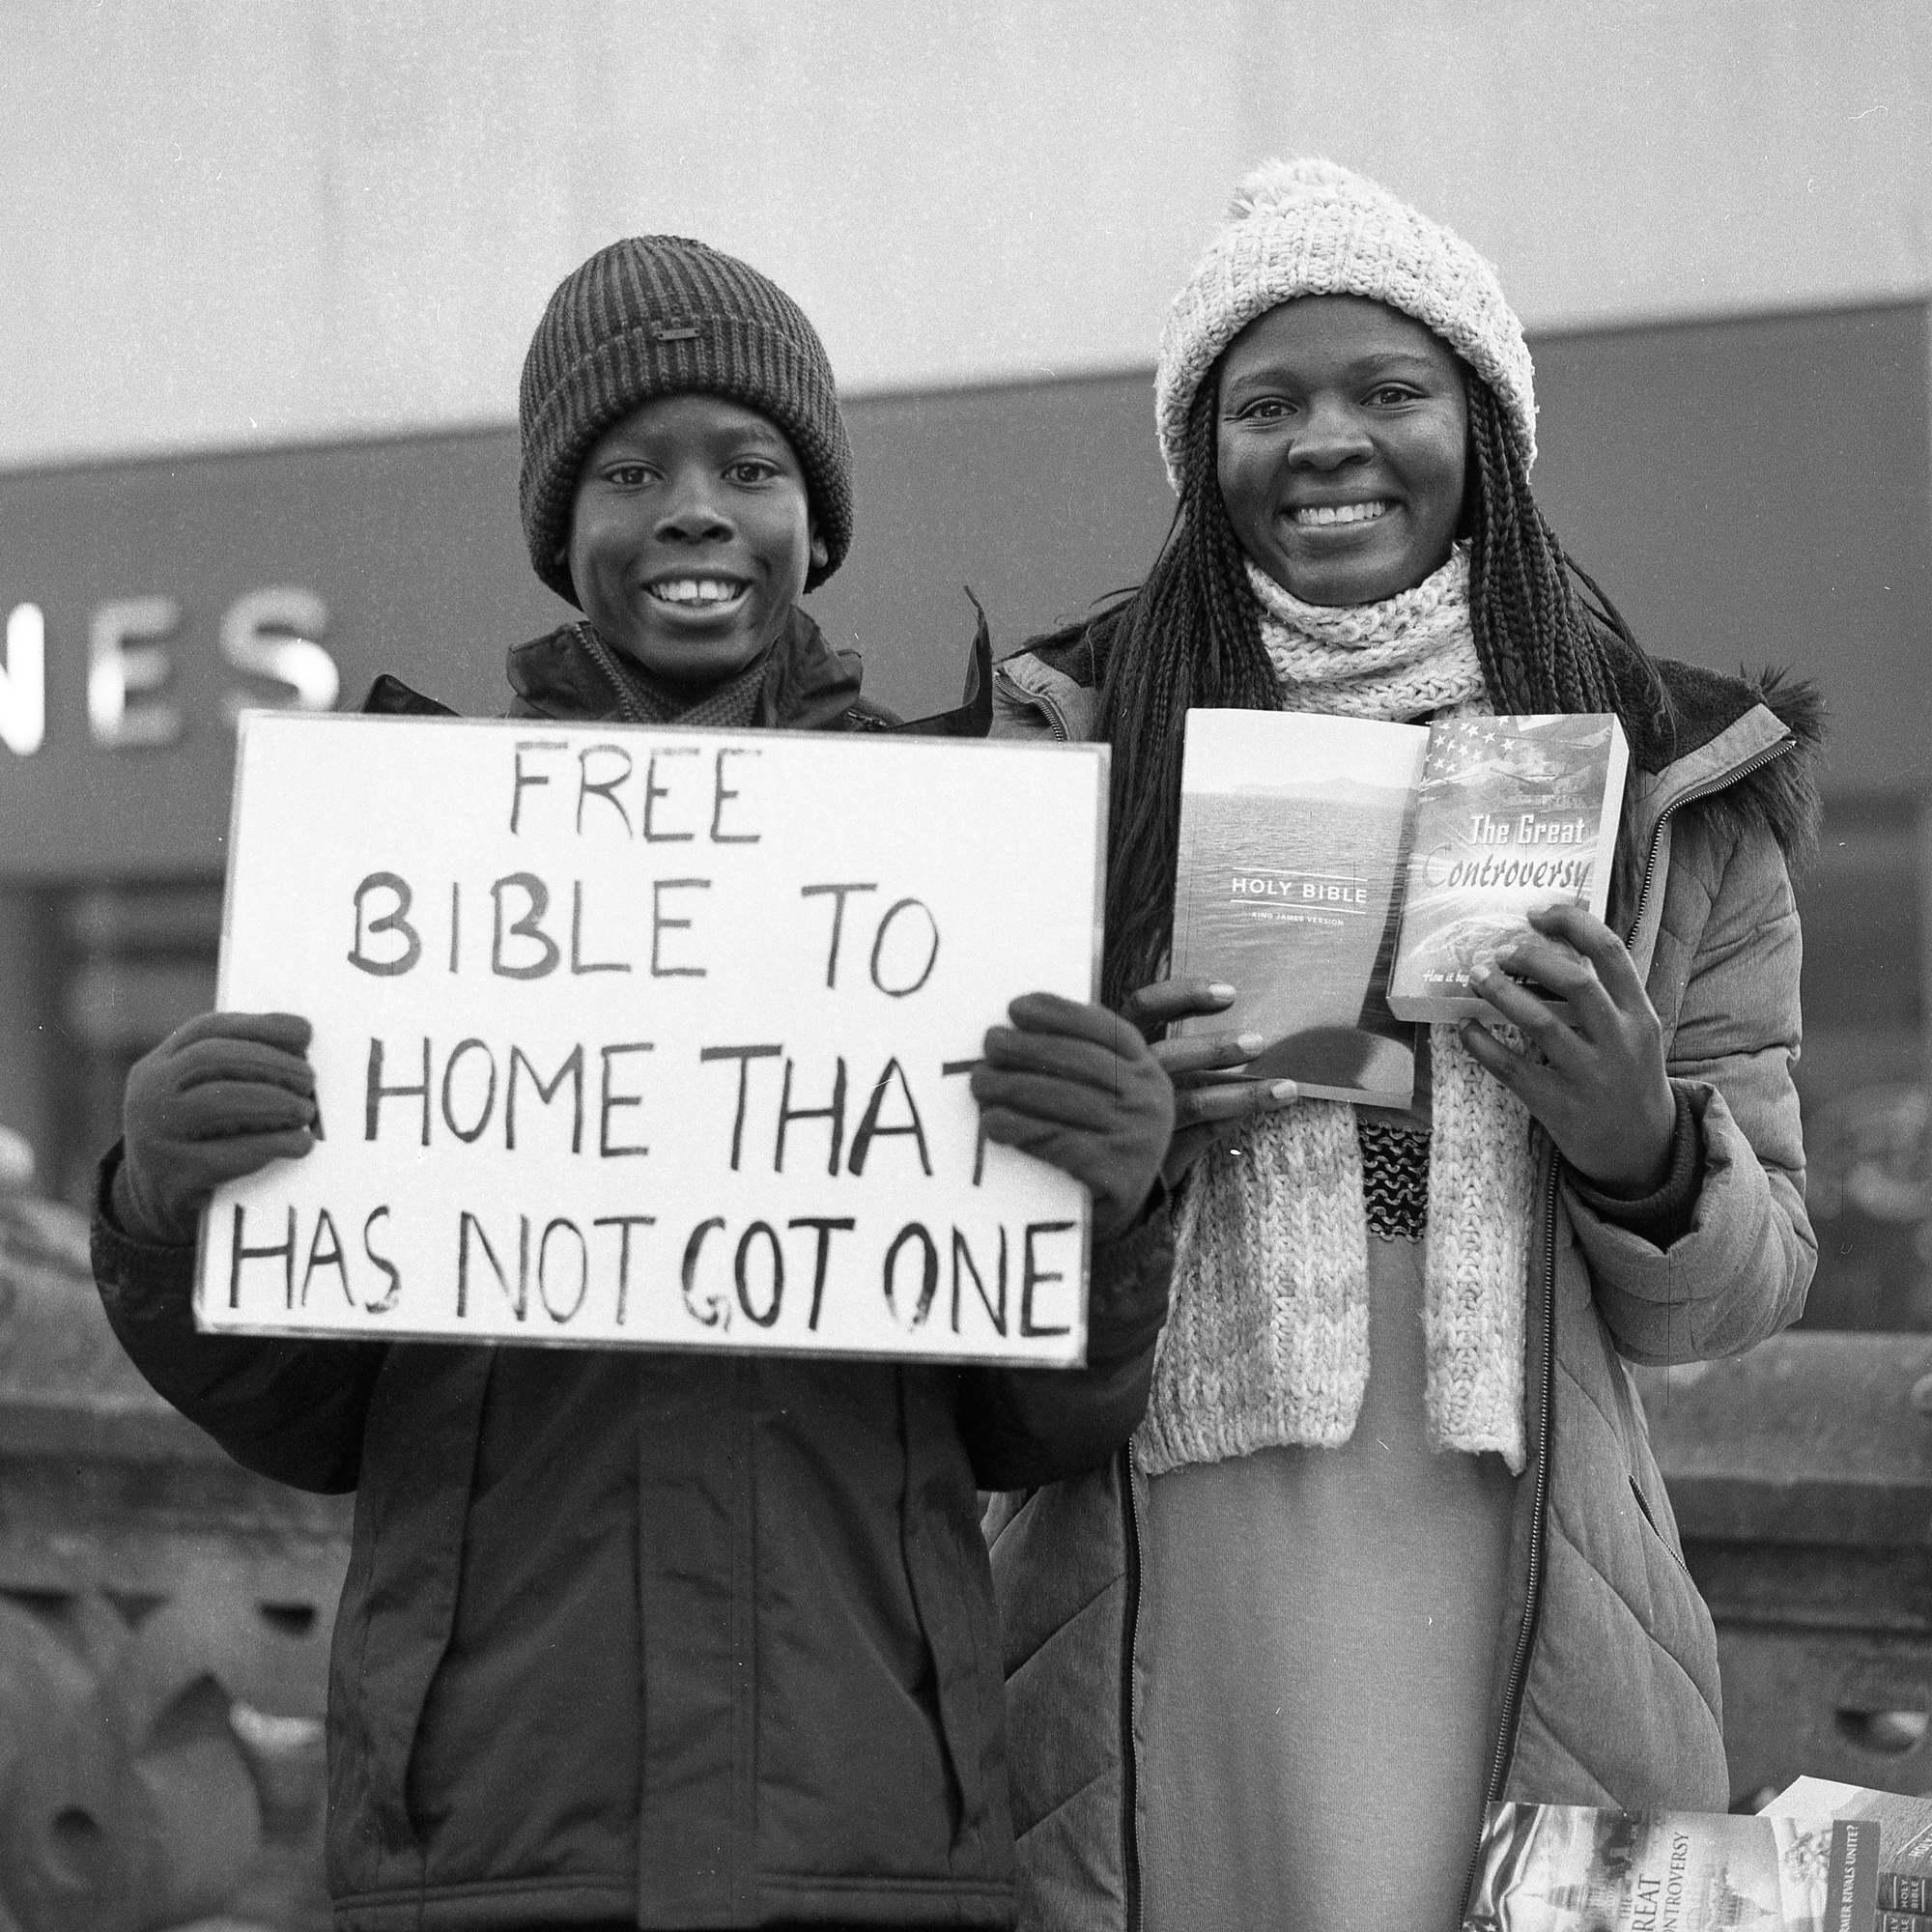 NES
FREE
BIBLE TO
A HOME THAT
HAS NOT GOT ONE
HOLY BIBLE
KING JAMES VERSION
The Great
Controversy
How it
THE
GREAT
CONTROVERSY
RIVALS UNITE?
HOLY
BIBLE